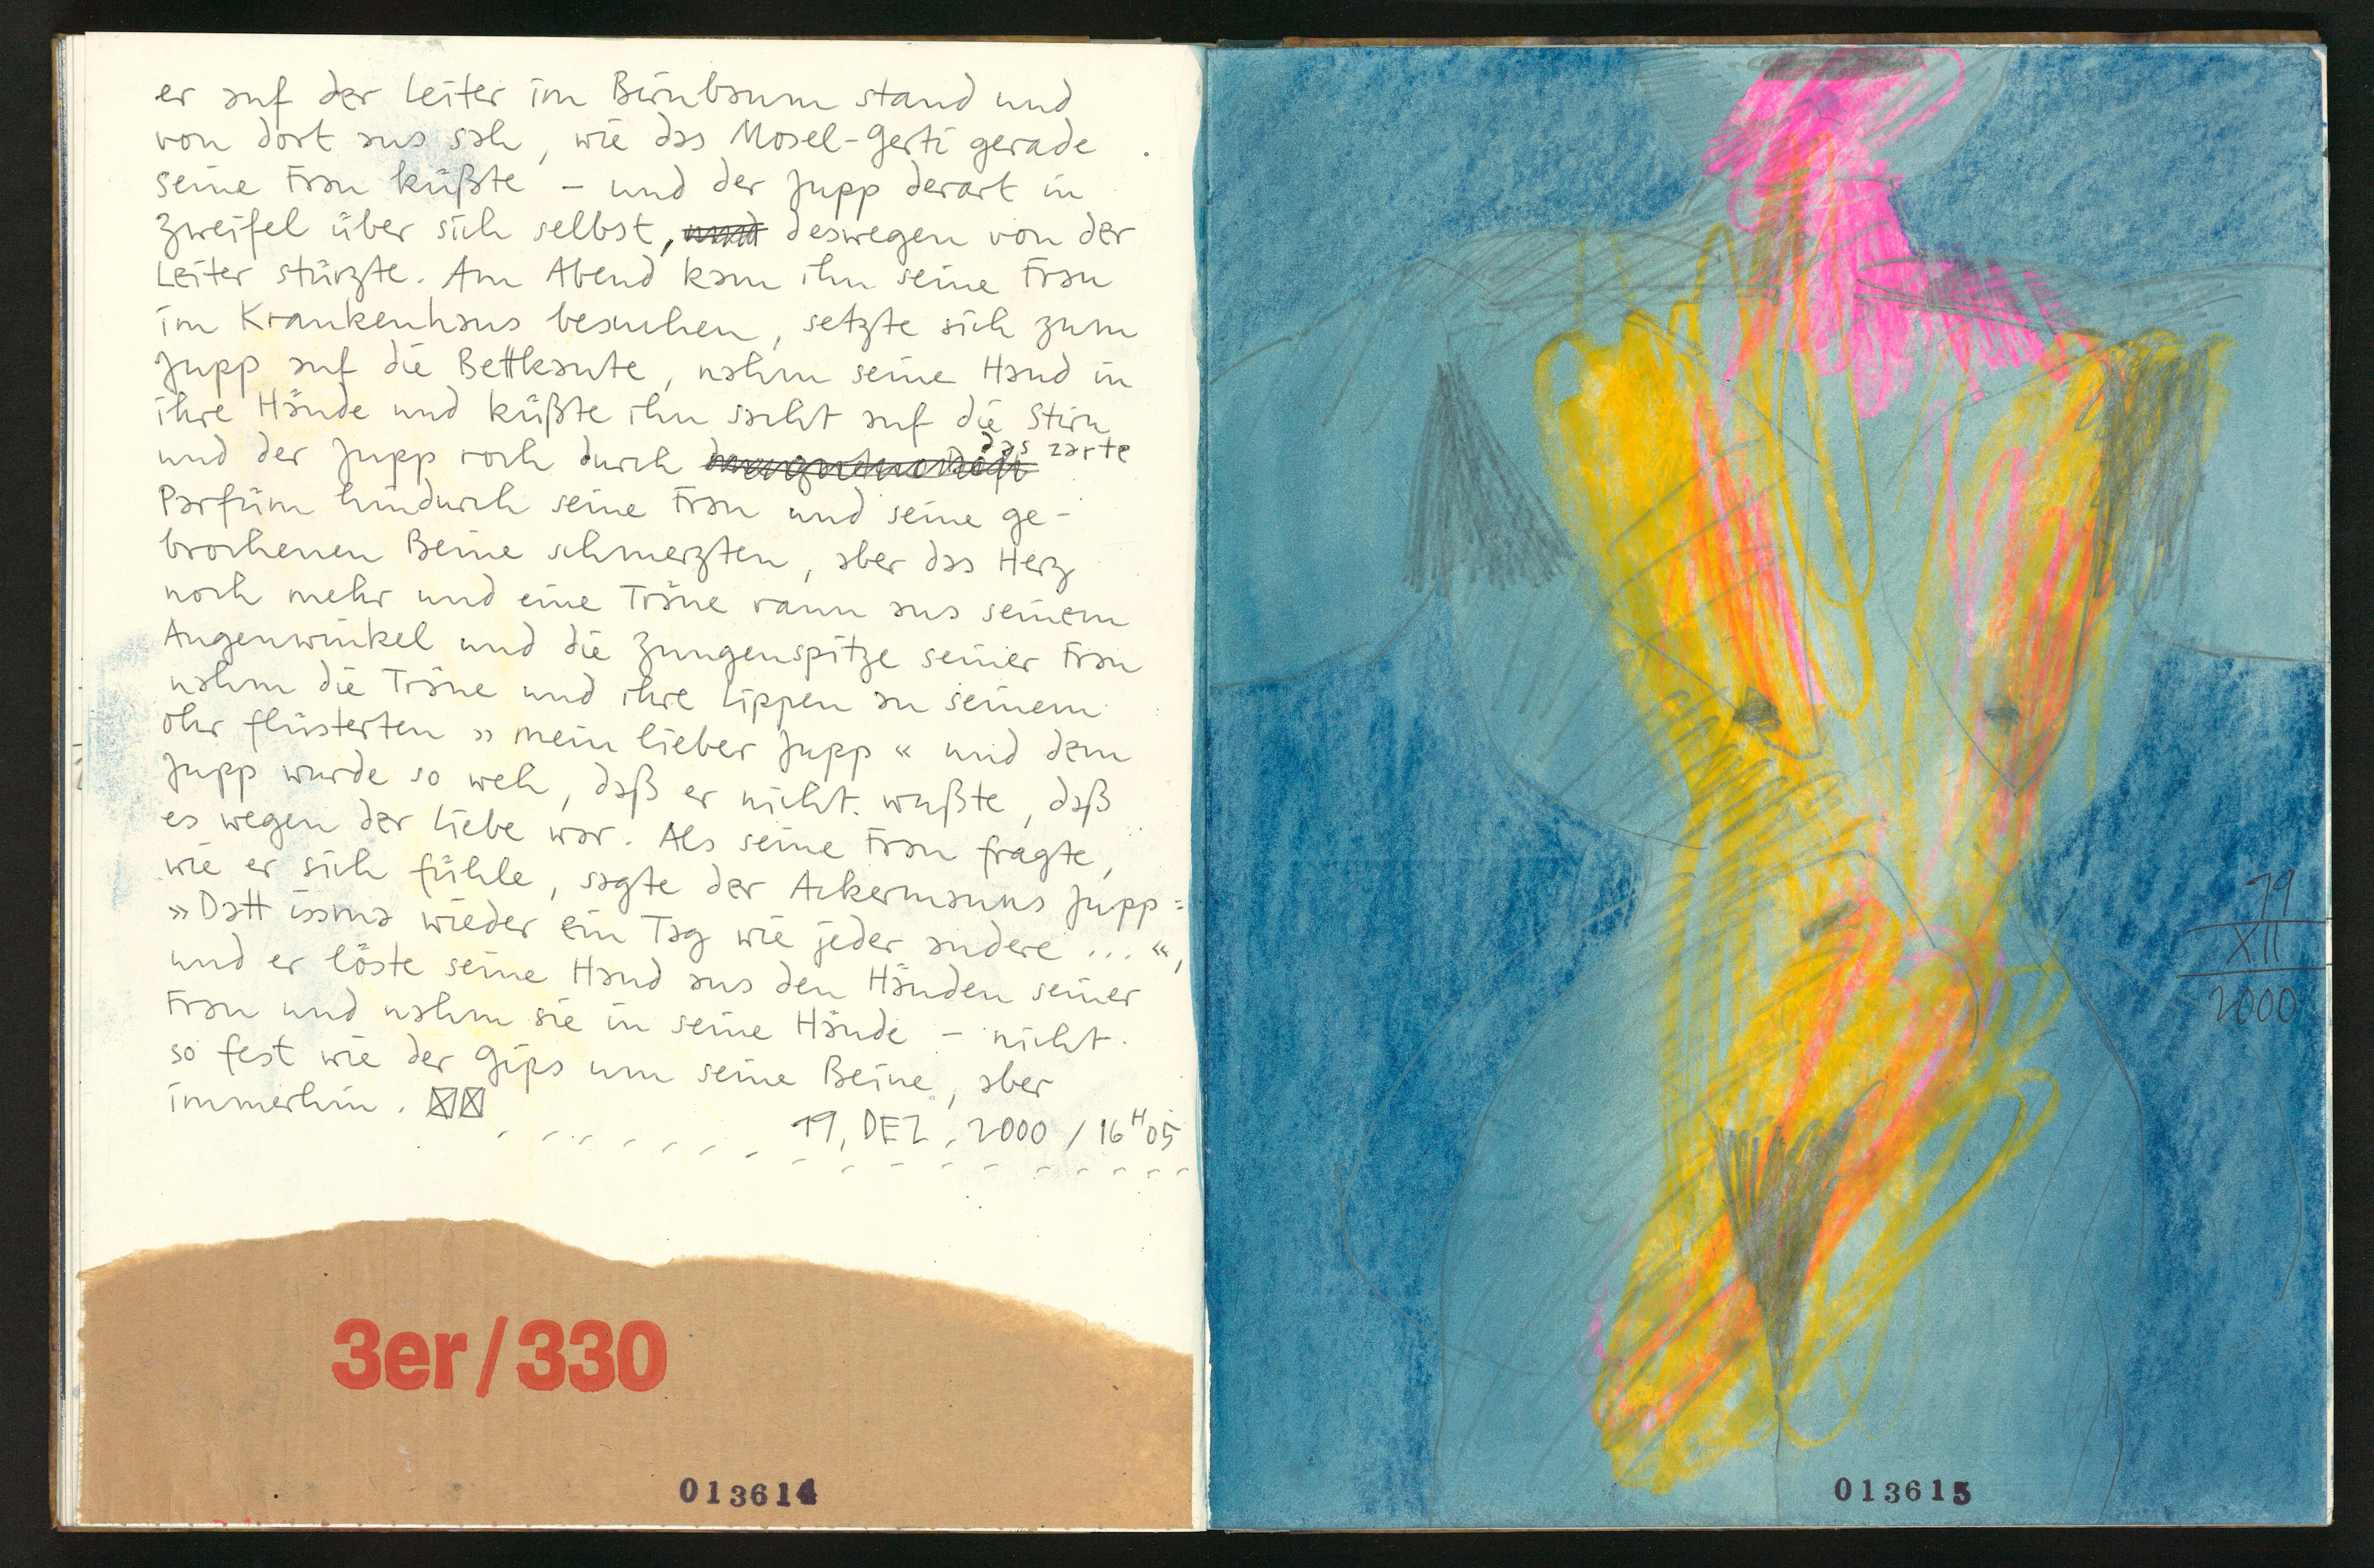 er auf der Leiter im Birnbaum stand und
von dort aus sah, wie das Mosel-Gerti gerade
seine Frau küßte – und der Jupp derart in
Zweifel über sich selbst, deswegen von der
Leiter stürzte. Am Abend kam ihn seine Frau
im Krankenhaus besuchen, setzte sich zum
Jupp auf die Bettkante, nahm seine Hand in
ihre Hände und küßte ihn sacht auf die Stirn
und der Jupp roch durch das zarte
Parfüm hindurch seine Frau und seine ge-
brochenen Beine schmerzten, aber das Herz
noch mehr und eine Träne rann aus seinem
Augenwinkel und die Zungenspitze seiner Frau
nahm die Träne und ihre Lippen an seinem
Ohr flüsterten »mein lieber Jupp« und dem
Jupp wurde so weh, daß er nicht wußte, daß
es wegen der Liebe war. Als seine Frau fragte,
wie er sich fühle, sagte der Ackermanns Jupp:
»Datt issma wieder ein Tag wie jeder andere ...«,
und er löste seine Hand aus den Händen seiner
Frau und nahm sie in seine Hände – nicht
so fest wie der Gips um seine Beine, aber
immerhin.
19. DEZ. 2000 / 16H05
3er/330
013614
19
XII
2000
013615